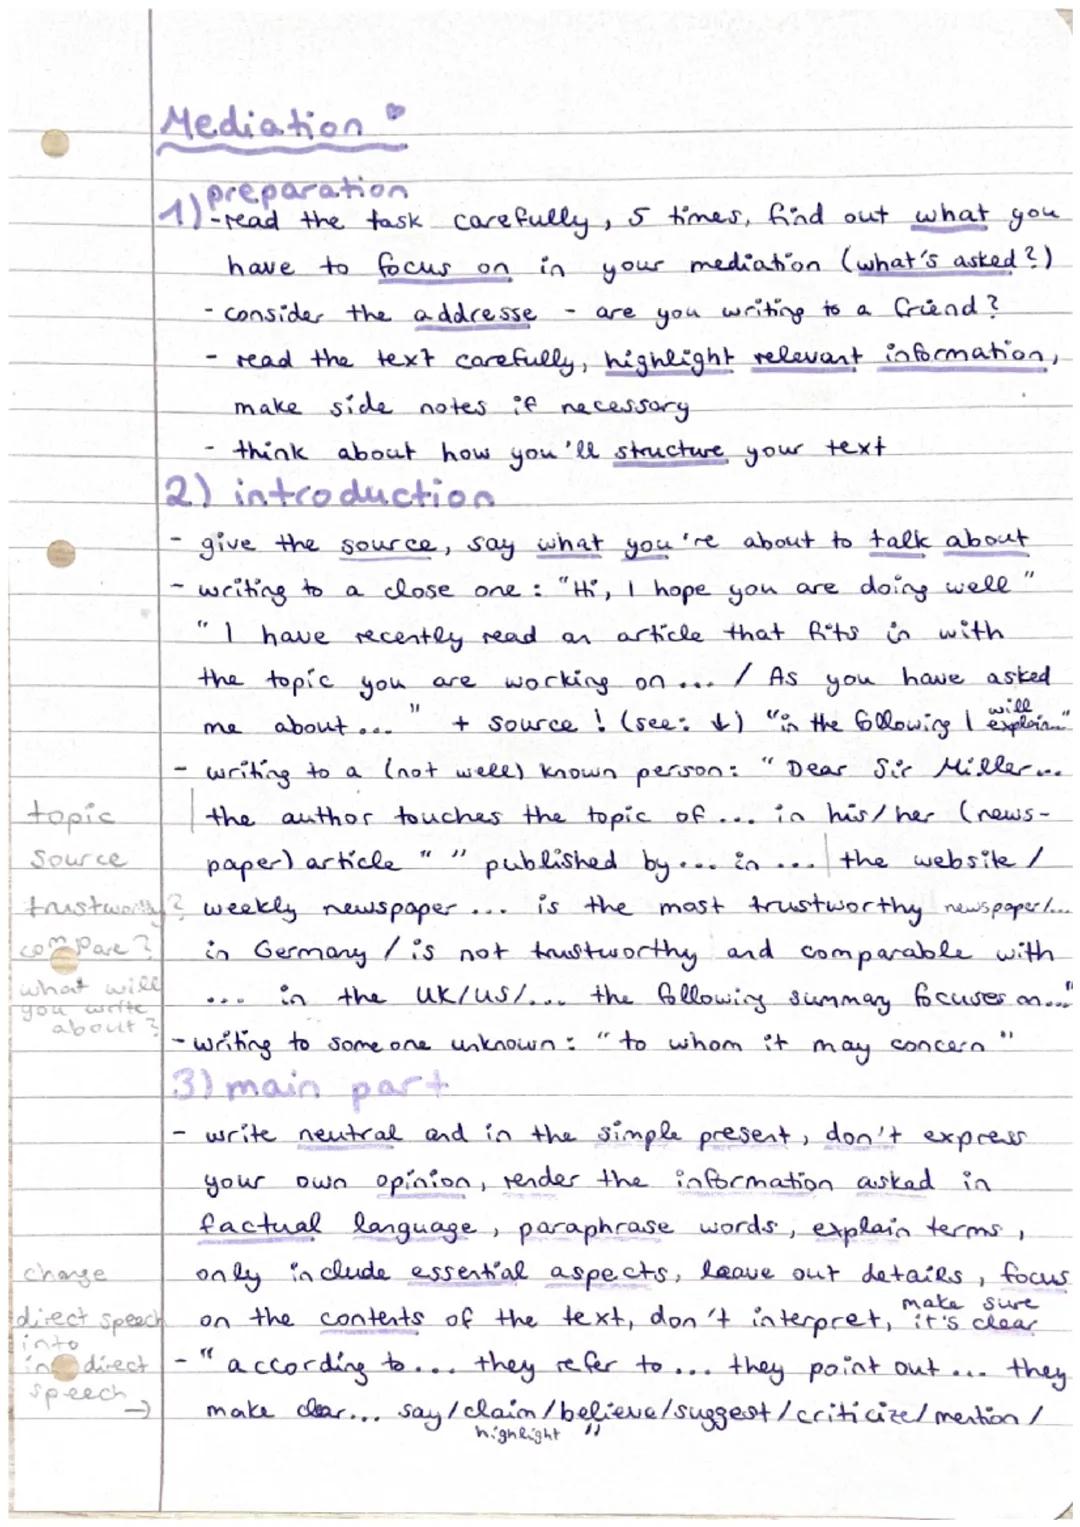 Mediation
1) preparation
- read the task carefully, 5 times, find out what you
have to focus on in your mediation (what's asked?)
- consider the addresse - are you writing to a friend?
- read the text carefully, highlight relevant information,
make side notes if necessary
- think about how you'll structure your text
2) introduction
- give the source, say what you're about to talk about
- writing to a close one: "Hi, I hope you are doing well"
"I have recently read an article that fits in with
the topic you are working on ... / As you have asked
me about ..." + source! (see: ↓) "in the following I will explain..."
- writing to a (not well) known person: "Dear Sir Miller...
topic
the author touches the topic of ... in his/her (news-
source
paper) article " " published by ... in ... | the website /
trustworthy?
weekly newspaper ... is the most trustworthy newspaper/...
compare?
in Germany / is not trustworthy and comparable with
what will
you write
about?
... in the UK/US/... the following summary focuses on..."
- writing to someone unknown: "to whom it may concern"
3) main part
- write neutral and in the simple present, don't express
your own opinion, render the information asked in
factual language, paraphrase words, explain terms,
only include essential aspects, leave out details, focus
on the contents of the text, don't interpret, make sure it's clear
change
direct speech
into
indirect
speech →
- "according to ... they refer to ... they point out ... they
make clear... say/claim/believe/suggest/criticize/mention/
highlight"